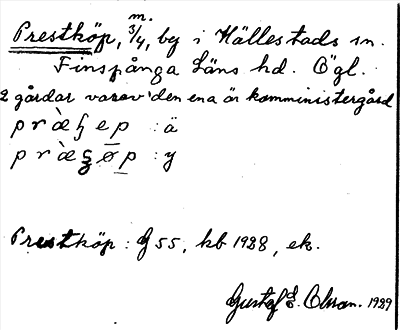 m.
Prestköp, 3/4, by i Hällestads sn.
Finspånga Läns hd. Ögl.
2 gårdar varav den ena är komministergård
: ä
: y
Prestköp : G 55, kb 1928, ek.
Gustaf E. Olsson. 1929